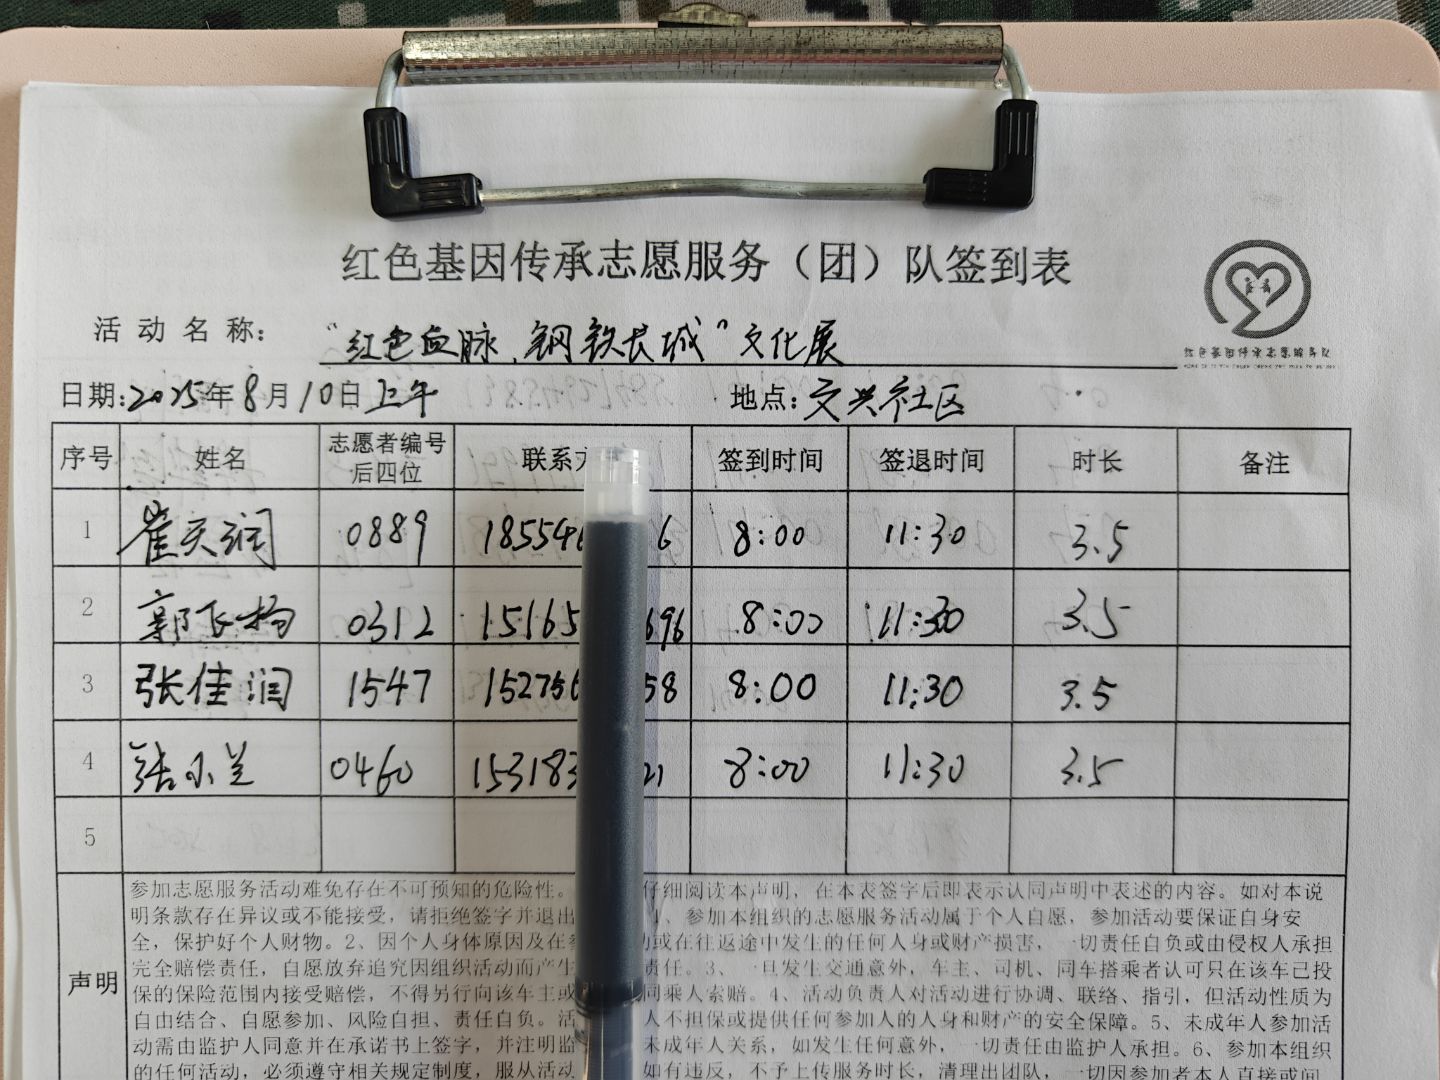 红色基因传承志愿服务（团）队签到表
活动名称：“红色血脉、钢铁长城”文化展
红色基因传承志愿服务队
日期：2025年8月10日上午 地点：文兴社区
序号 姓名 志愿者编号后四位 联系方 签到时间 签退时间 时长 备注
1 崔天润 0889 18554 6 8:00 11:30 3.5
2 郭飞扬 0312 15165 696 8:00 11:30 3.5
3 张佳润 1547 15275 58 8:00 11:30 3.5
4 张小兰 0460 153183 21 8:00 11:30 3.5
5
声明
参加志愿服务活动难免存在不可预知的危险性。 仔细阅读本声明，在本表签字后即表示认同声明中表述的内容。如对本说
明条款存在异议或不能接受，请拒绝签字并退出 1、参加本组织的志愿服务活动属于个人自愿，参加活动要保证自身安
全，保护好个人财物。2、因个人身体原因及在参 动或在往返途中发生的任何人身或财产损害，一切责任自负或由侵权人承担
完全赔偿责任，自愿放弃追究因组织活动而产生 责任。3、一旦发生交通意外，车主、司机、同车搭乘者认可只在该车已投
保的保险范围内接受赔偿，不得另行向该车主或 同乘人索赔。4、活动负责人对活动进行协调、联络、指引，但活动性质为
自由结合、自愿参加、风险自担、责任自负。活 人不担保或提供任何参加人的人身和财产的安全保障。5、未成年人参加活
动需由监护人同意并在承诺书上签字，并注明监 未成年人关系，如发生任何意外，一切责任由监护人承担。6、参加本组织
的任何活动，必须遵守相关规定制度，服从活动 如有违反，不予上传服务时长，清理出团队，一切因参加者本人直接或间